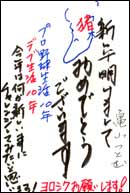 新年明けまして
おめでとう
ございます
亀山つとむ
プロ野球生活10年
デブ生活10年
今年は何か新い事に
チャレンジしてみたいと思います!
ヨロシクお願いします!